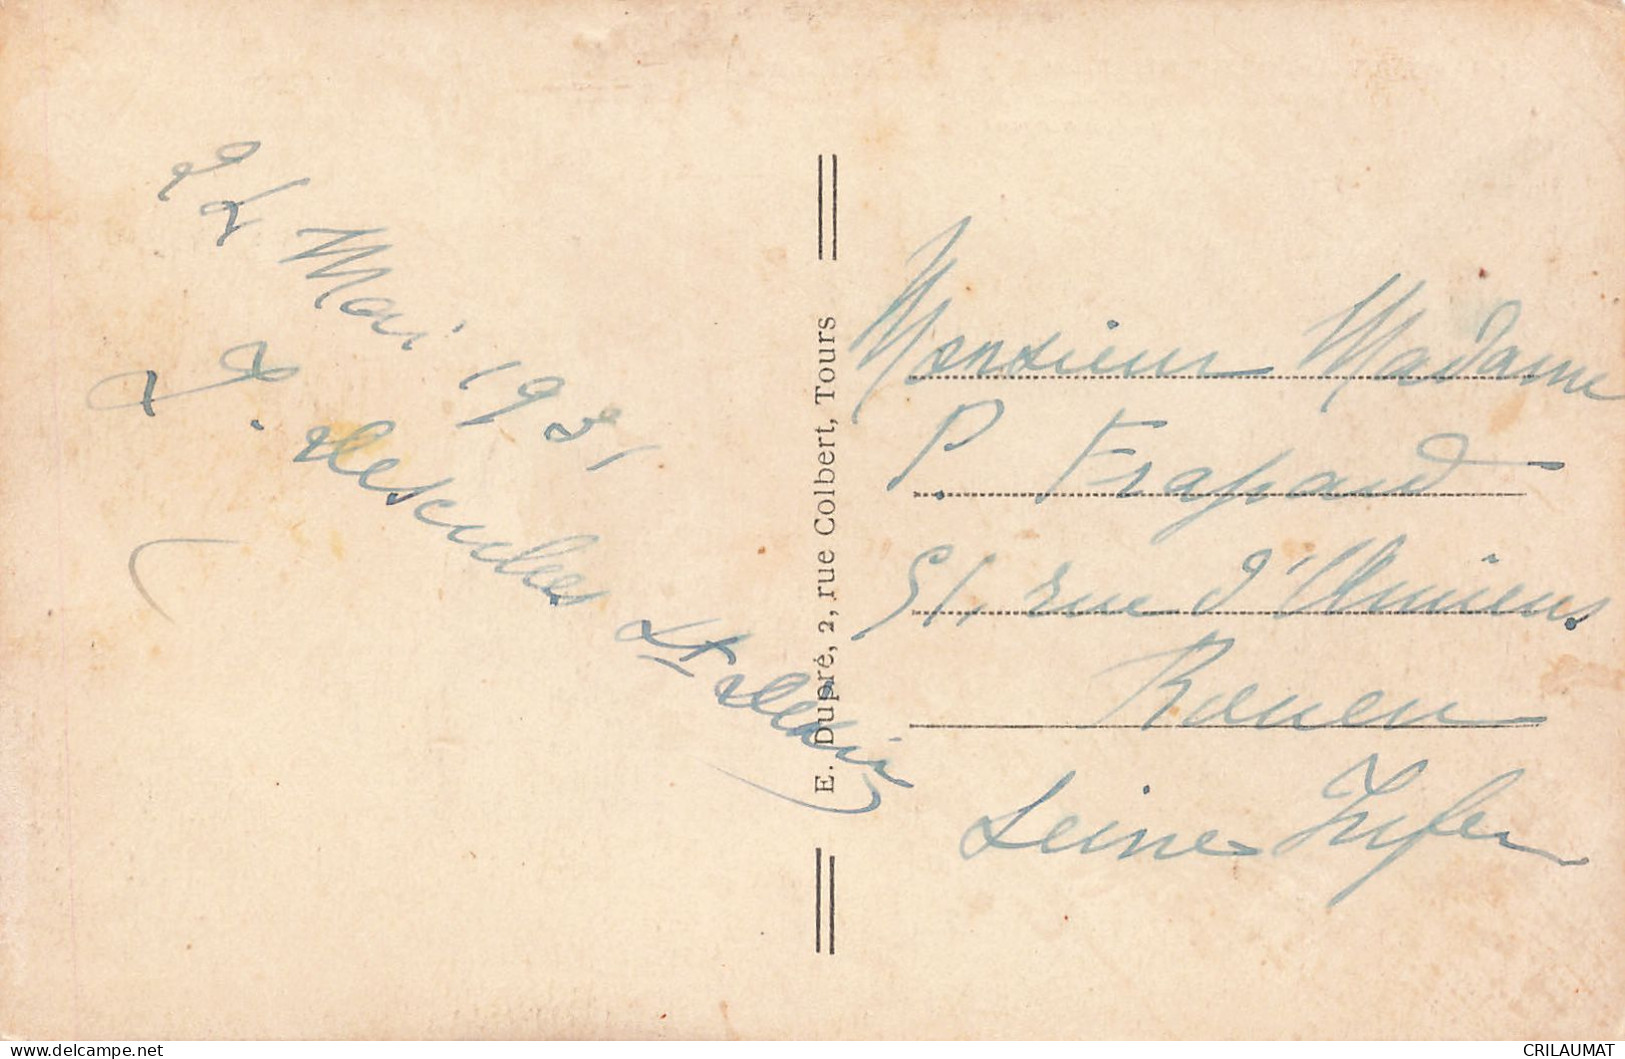 24 Mai 1931
J. Descubes St Denis
E. Dupré, 2, rue Colbert, Tours
Monsieur Madame
P. Frapaud
51 rue d'Amiens.
Rouen
Seine Infer
delcampe.net
CRILAUMAT